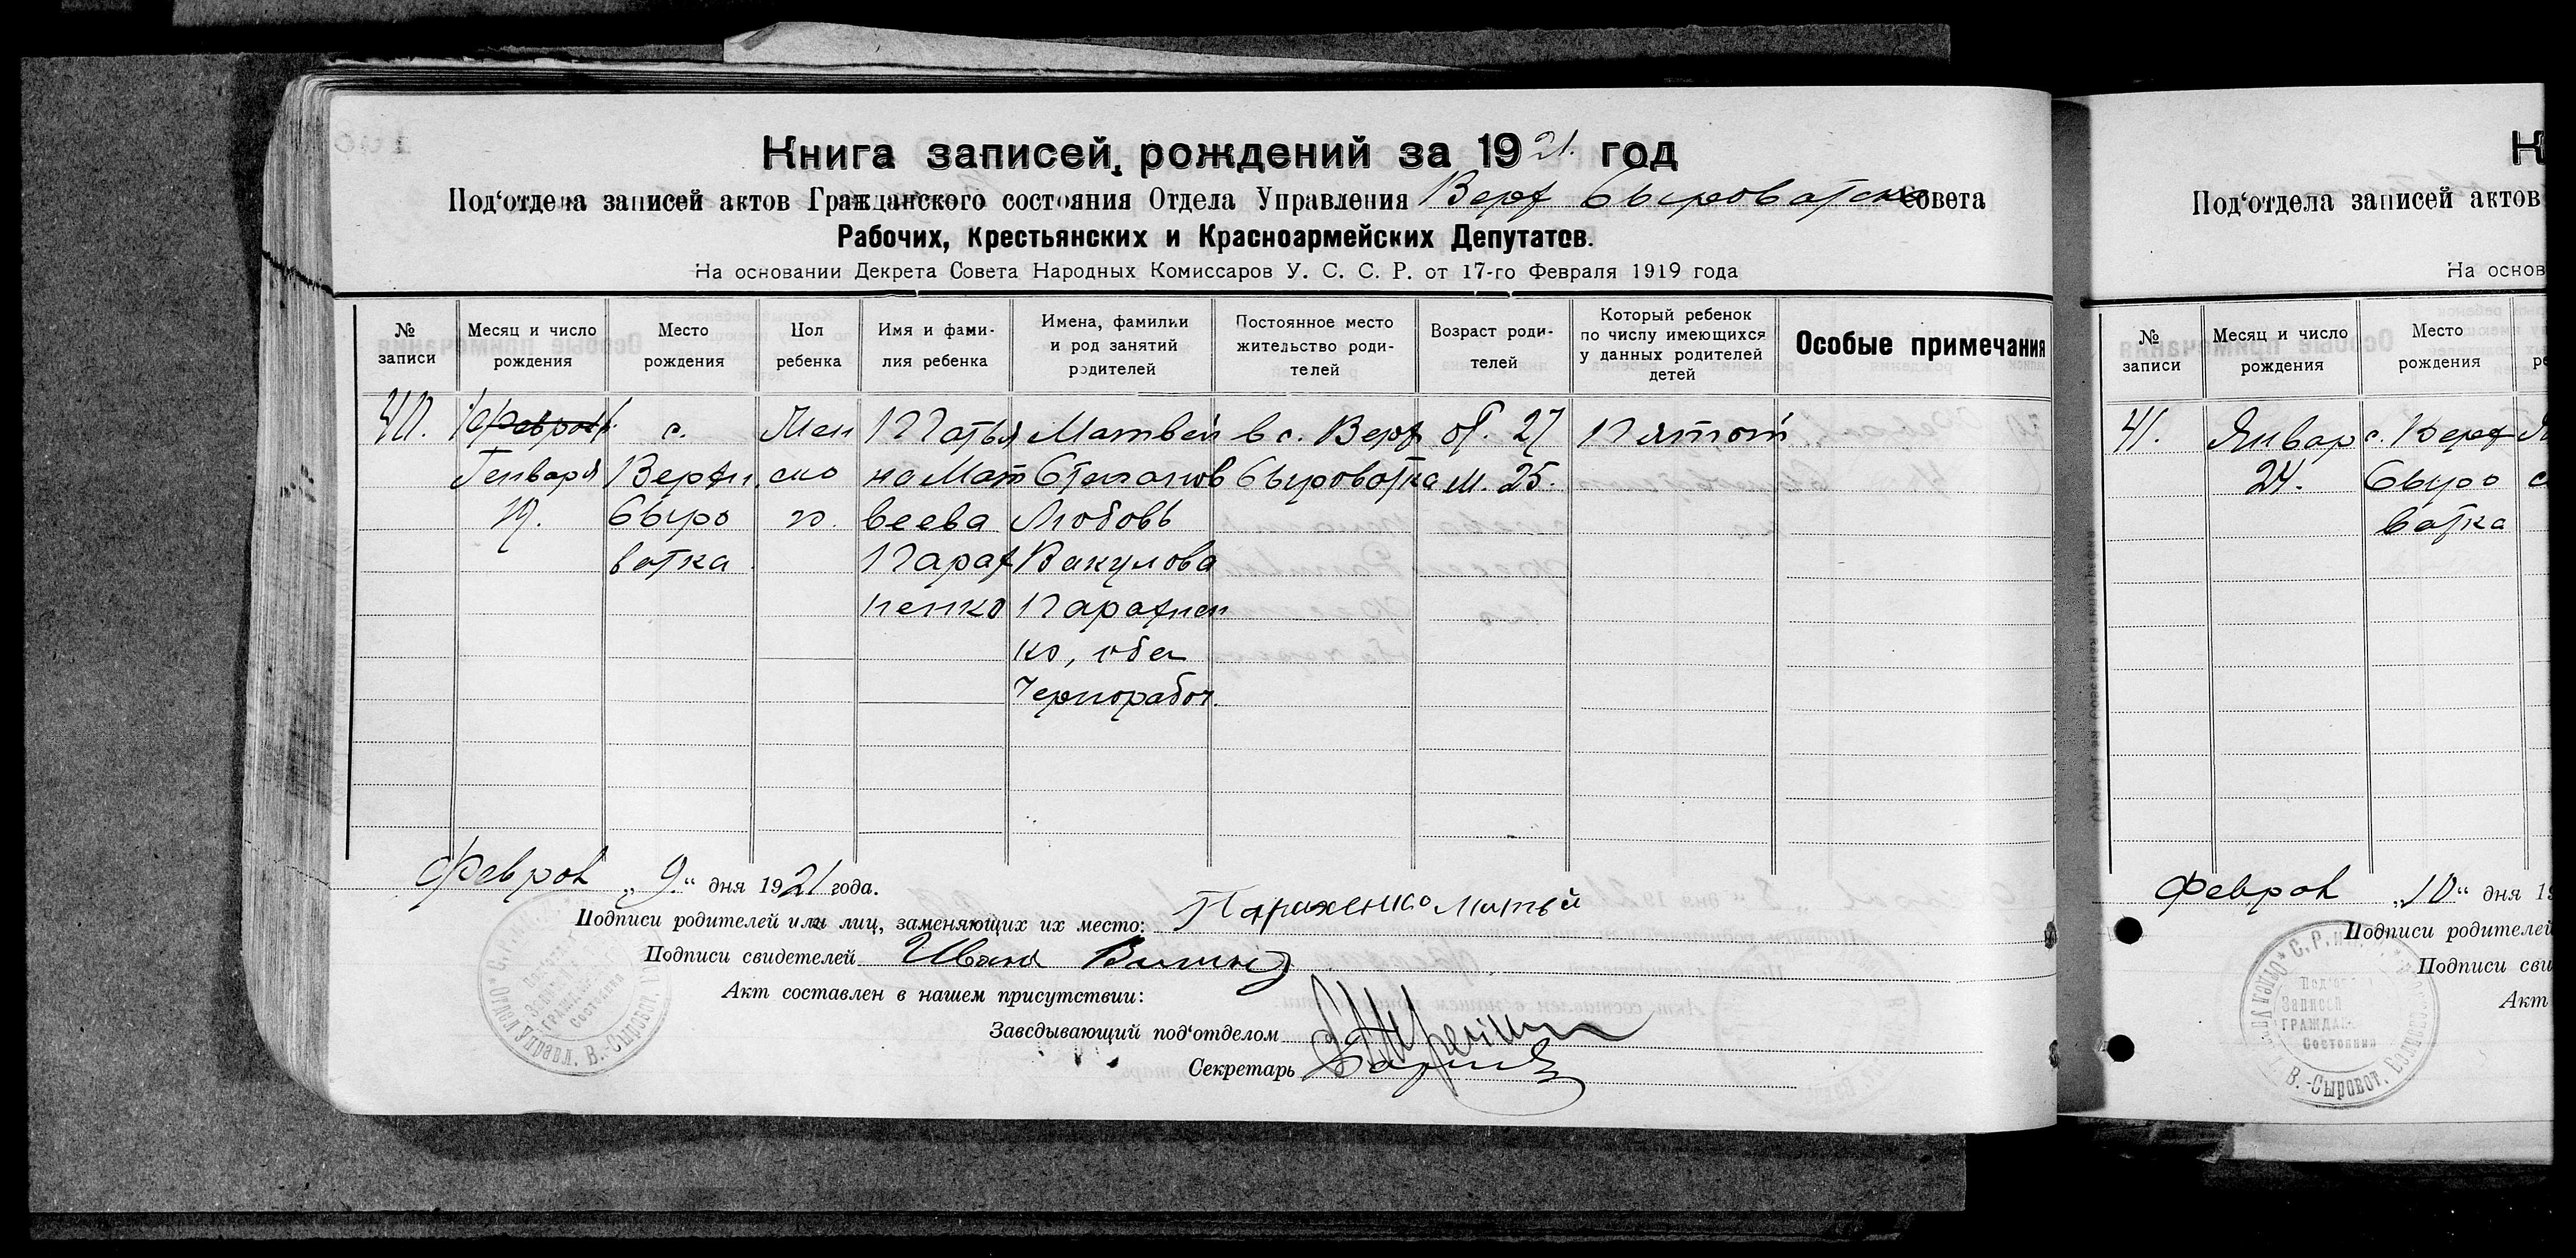 Книга записей рождений за 1921. год
Под‘отдела записей актов Гражданского состояния Отдела Управления Верх Сыроватско Совета
Рабочих, Крестьянских и Красноармейских Депутатов.
На основании Декрета Совета Народных Комиссаров У. С. С. Р. от 17-го Февраля 1919 года
№ записи
Месяц и число рождения
Место рождения
Пол ребенка
Имя и фами-
лия ребенка
Имена, фамилии
и род занятий
родителей
Постоянное место
жительство роди-
телей
Возраст роди-
телей
Который ребенок
по числу имеющихся
у данных родителей
детей
Особые примечания
40.
Феврал
Генваря
19.
с.
Верхн.
Сыро
ватка
Жен
ско
го.
Татья
на Мат
веева
Парах
ненко
Матвей
Степанов
Любовь
Вакулова
Парахнен
ко, оба
Чернорабоч.
в с. Верх
Сыроватка
от. 27
м. 25.
Пятый
Феврал „9.“ дня 1921 года.
Подписи родителей или лиц, заменяющих их место: Парихенко Митвей
Подписи свидетелей Иван
Акт составлен в нашем присутствии:
Заведывающий под‘отделом
Секретарь
К
Под‘отдела записей актов
На основ
№ записи
Месяц и число рождения
Место рождения
41.
Январ
24.
с. Верх
Сыро
ватка
Феврал „10“ дня 19
Подписи родителей
Подписи сви
Акт